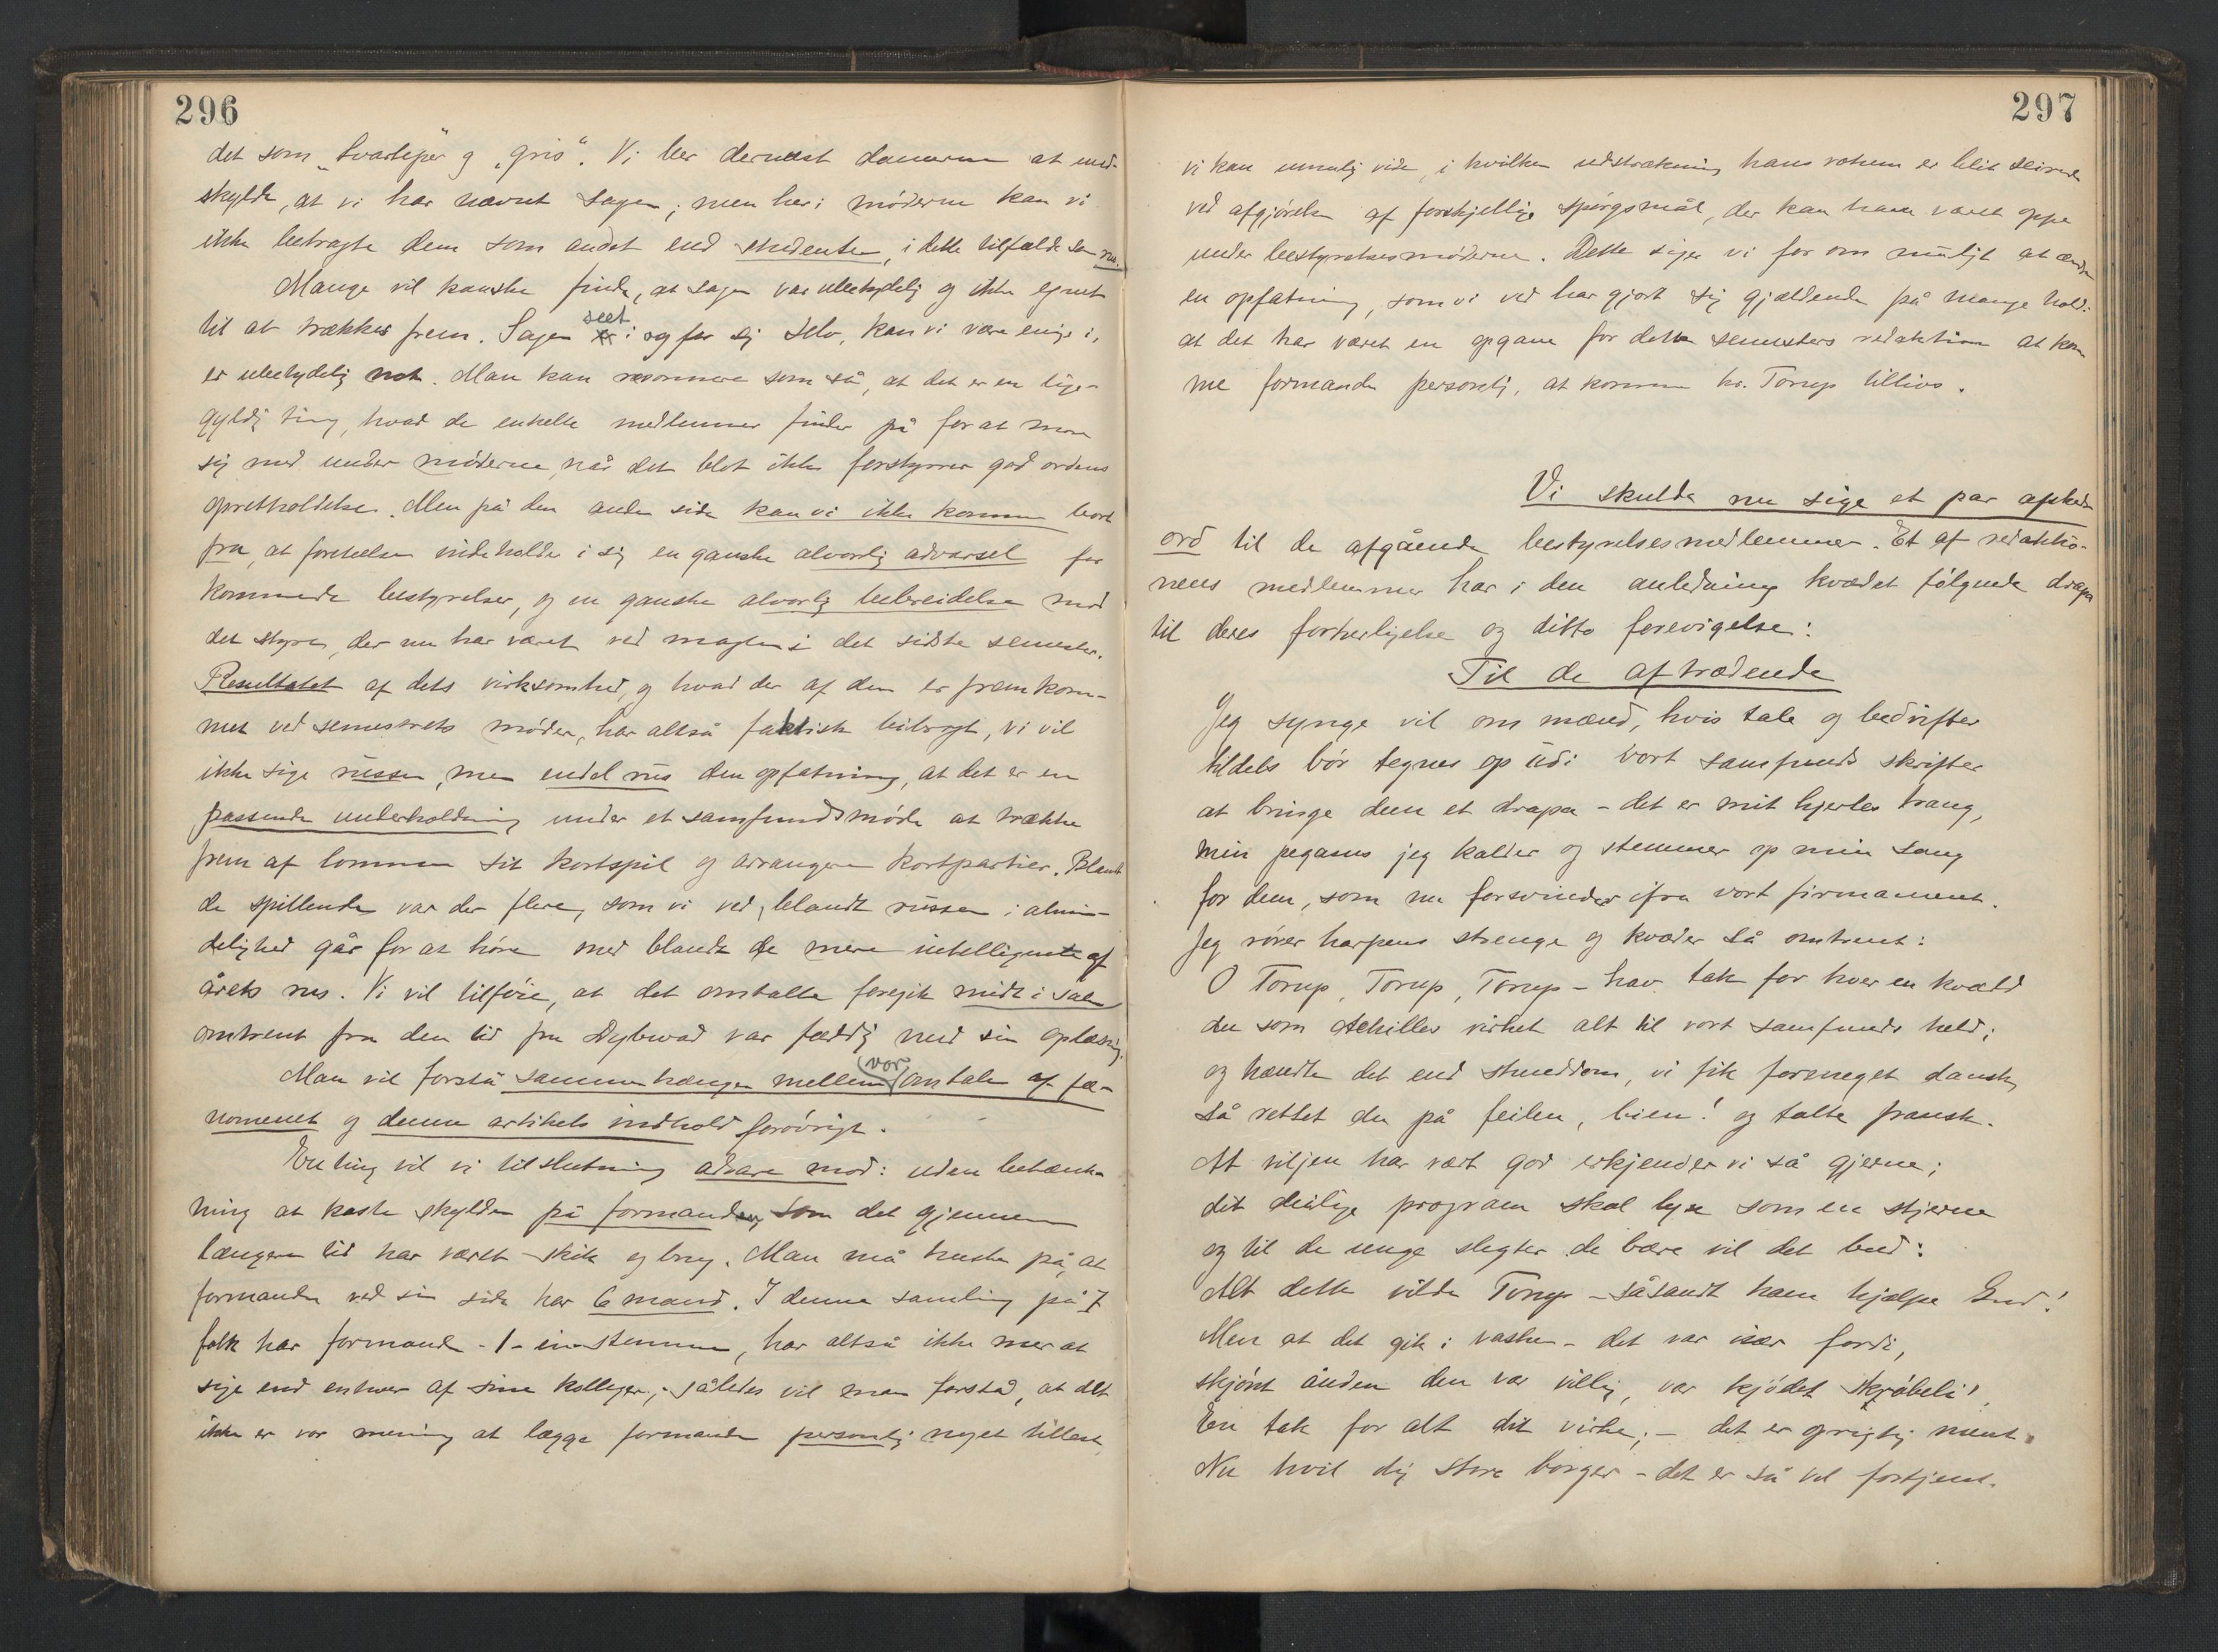 296
det som „svarteper“ og „gris“. Vi ber dernæst damerne at und-
skylde, at vi har nævnt sagen; men her i møderne kan vi
ikke betragte dem som andet end studenter, i dette tilfælde som rus.
Mange vil kanske finde, at sagen var ubetydelig og ikke egnet
til at trækkes frem. Sagen seet i og for sig selv, kan vi være enige i,
er ubetydelig nok. Man kan resonnere som så, at det er en lige-
gyldig ting, hvad de enkelte medlemmer finder på for at more
sig med under møderne, når det blot ikke forstyrrer god ordens
opretholdelse. Men på den anden side kan vi ikke komme bort
fra, at foreteelsen indeholder i sig en ganske alvorlig advarsel for
kommende bestyrelser, og en ganske alvorlig bebreidelse mod
det styre, der nu har været ved magten i det sidste semester.
Resultatet af dets virksomhed, og hvad der af den er fremkom-
met ved semestrets møder, har altså faktisk bibragt, vi vil
ikke sige russen, men endel rus den opfatning, at det er en
passende underholdning under et samfundsmøde at trække
frem af lommen sit kortspil og arrangere kortpartier. Blandt
de spillende var der flere, som vi ved, blandt russen i almin-
delighed går for at høre med blandt de mere intelligente af
årets rus. Vi vil tilføie, at det omtalte foregik midt i salen
omtrent fra den tid fru Dybwad var færdig med sin oplæsning.
Man vil forstå sammenhængen mellem vor omtale af fæ-
nomenet og denne artikels indhold forøvrigt.
En ting vil vi tilslutning advare mod: uden betænk-
ning at kaste skylden på formanden, som det gjennem
længere tid har været skik og brug. Man må huske på, at
formanden ved sin side har 6 mand. I denne samling på 7
folk har formanden - 1 - en stemme, har altså ikke mer at
sige end enhver af sine kolleger; således vil man forstå, at det
ikke er vor mening at lægge formanden personlig noget tillast,
297
vi kan umulig vide, i hvilken udstrækning hans votum er blit seirende
ved afgjørelsen af forskjellige spørgsmål, der kan have været oppe
under bestyrelsesmøderne. Dette siger vi for om muligt at ændre
en opfatning, som vi ved har gjort sig gjældende på mange hold:
at det har været en opgave for dette semesters redaktion at kom-
me formanden personlig, at komme hr. Torup tillivs.
Vi skulde nu sige et par afskeds
ord til de afgående bestyrelsesmedlemmer. Et af redaktio-
nens medlemmer har i den anledning kvædet følgende drapa
til deres forherligelse og ditto forevigelse:
Til de aftrædende
Jeg synge vil om mænd, hvis tale og bedrifter
tildels bør tegnes op udi vort samfunds skrifter
at bringe dem et drapa - det er mit hjertes trang,
min pegasus jeg kalder og stemmer op min sang
for dem, som nu forsvinder ifra vort firmament.
Jeg rører harpens strenge og kvæder så omtrent:
O Torup, Torup, Torup - hav tak for hver en kvæld
du som Achilles virket alt til vort samfunds held;
og hændte det end stunddom, vi fik formeget dansk,
så rettet du på feilen, bien! og talte fransk.
At viljen har vært god erkjender vi så gjerne;
dit deilige program skal lyse som en stjerne
og til de unge slegter de bære vil det bud:
Alt dette vilde Torup - såsandt ham hjælpe Gud!
Men at det gik i vasken - det var især fordi,
skjønt ånden den var villig, var kjødet skrøbeli'.
En tak for alt dit virke; - det er oprigtig ment.
Nu hvil dig store borger - det er så vel fortjent.